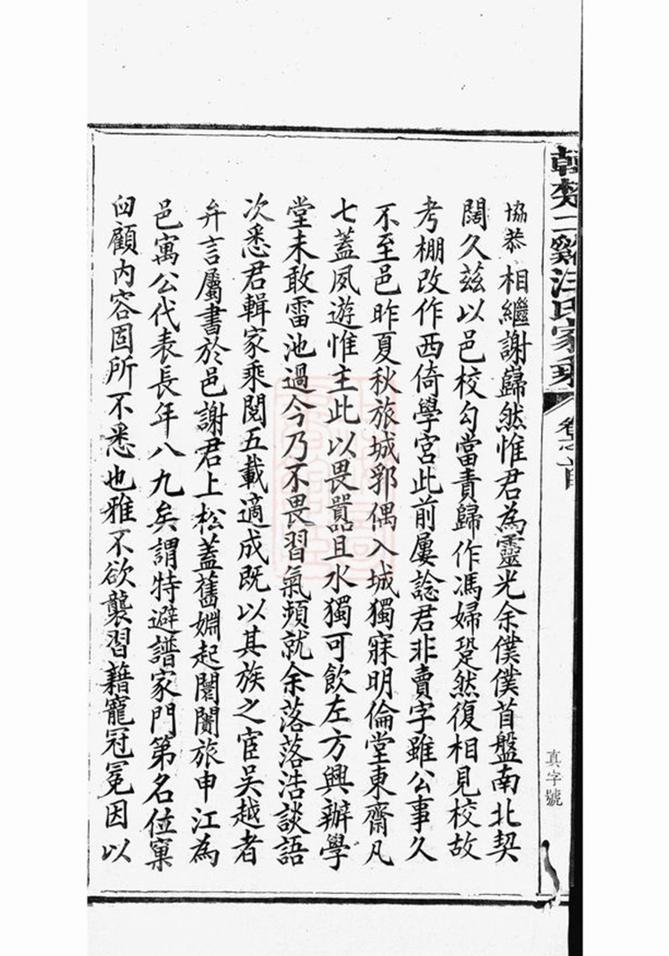 韓楚二谿汪氏家乘 卷之首
真字號
協恭相繼謝巋然惟君為靈光余僕僕苜盤南北契
闊久茲以邑校勾當責歸作馮婦跫然復相見校故
考棚改作西倚學宮此前屢諗君非賣字雖公事久
不至邑昨夏秋旅城郛偶入城獨寐明倫堂東齋凡
七蓋夙遊惟主此以畏囂且水獨可飲左方興辦學
堂未敢雷池過今乃不畏習氣頻就余落落浩談語
次悉君輯家乘閱五載適成既以其族之宦吳越者
弁言屬書於邑謝君上松蓋舊婣起闤闠旅申江為
邑寓公代表長年八九矣謂特避譜家門第名位窠
臼顧內容固所不悉也雅不欲襲習藉寵冠冕因以